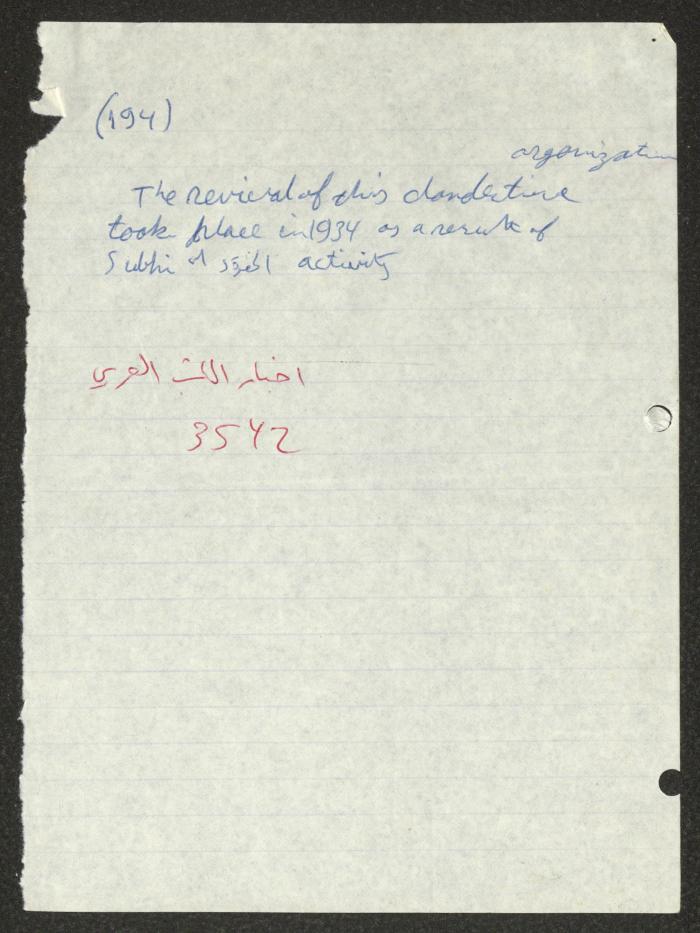 (194)
organization
The revieral of this clandestine
took place in 1934 as a result of
Subhi activity
اخبار العربي
3542